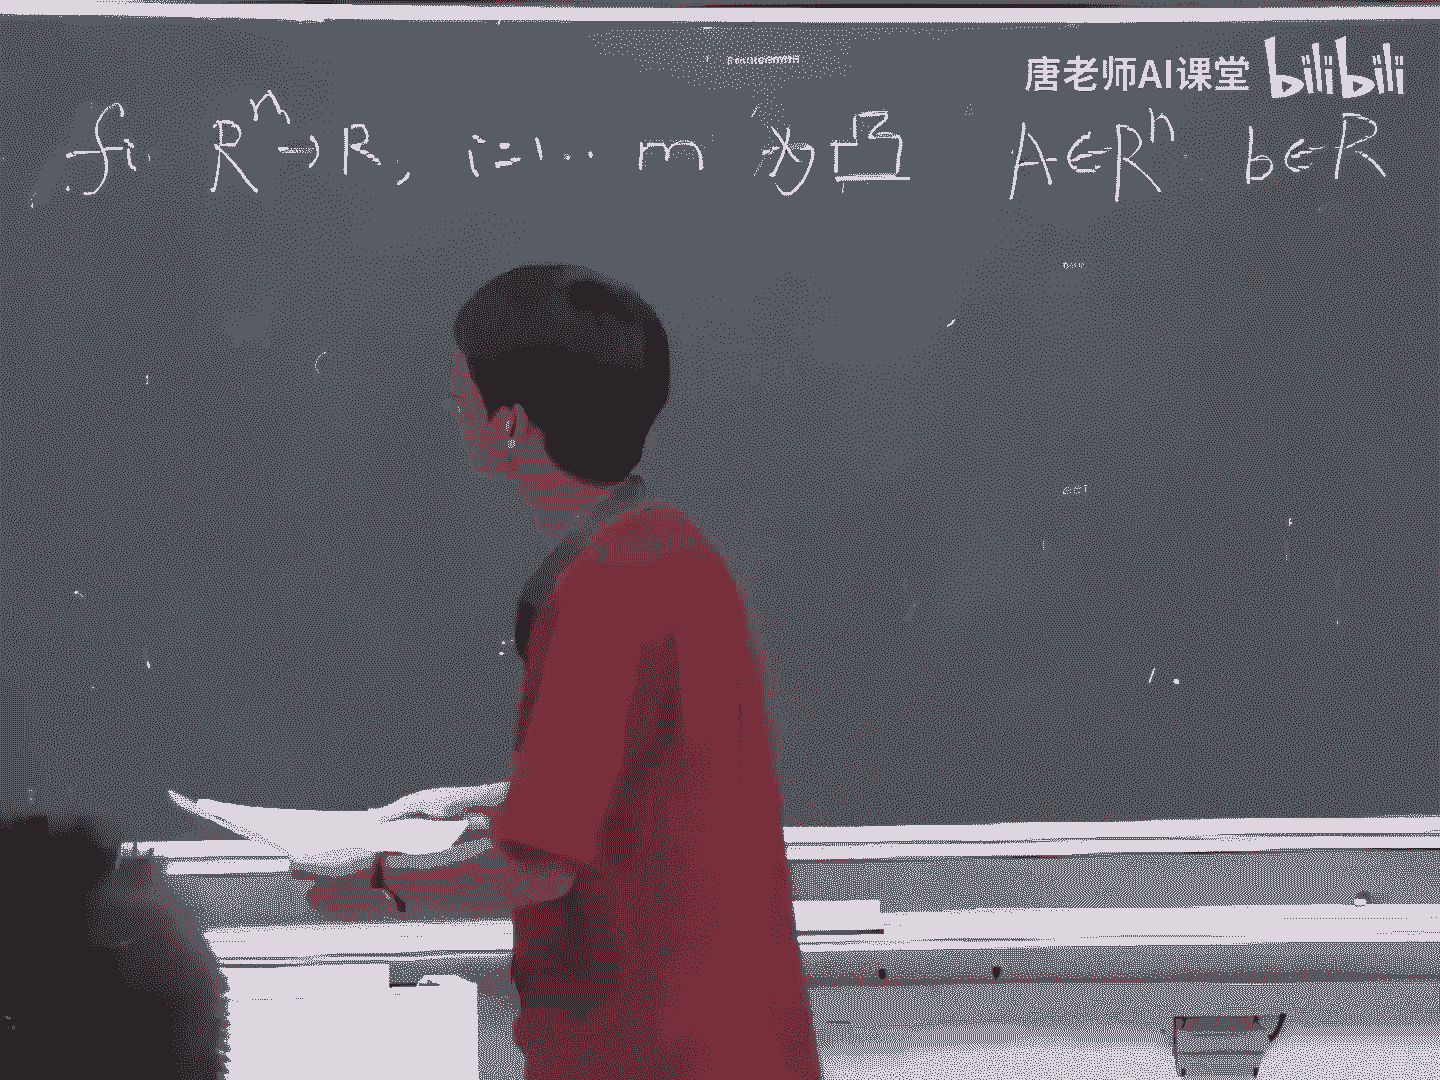 唐老师AI课堂 bilibili
fi R^n → R, i=1.. m 为凸 A∈R^n b∈R